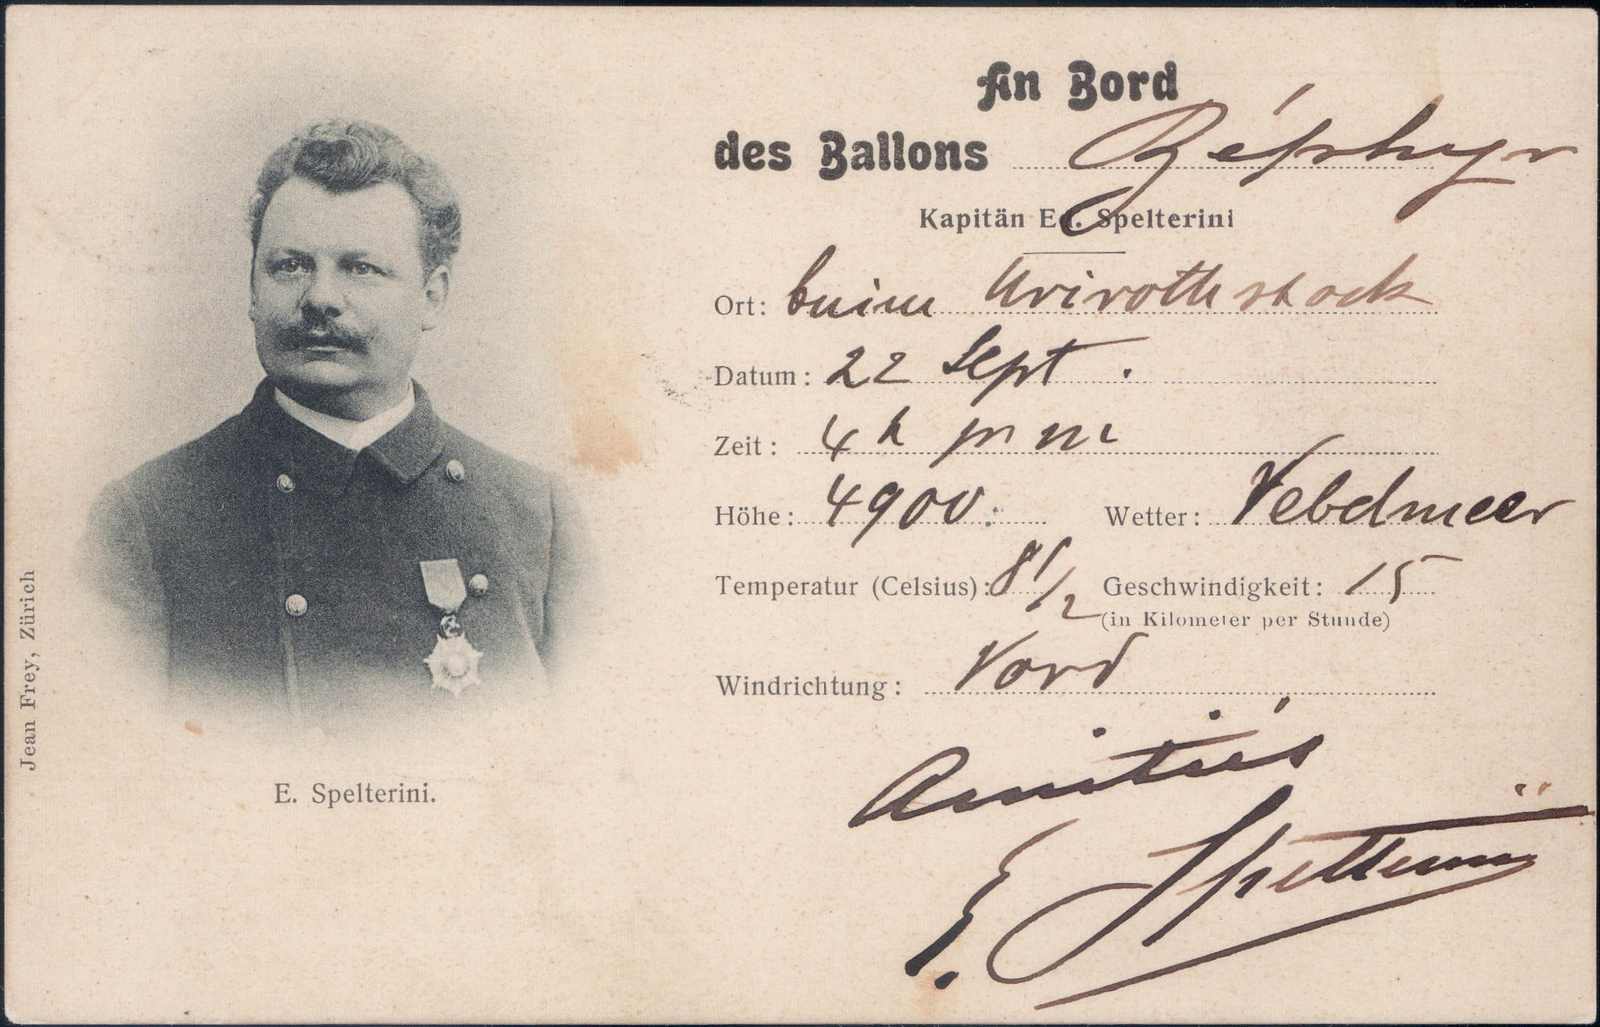 An Bord
des Ballons Zéphyr
Kapitän Ed. Spelterini
Ort: beim Urirothstock
Datum: 22 Sept.
Zeit: 4h pm
Höhe: 4900. Wetter: Nebelmeer
Temperatur (Celsius): 8 1/2 Geschwindigkeit: 15
(in Kilometer per Stunde)
Windrichtung: Nord
Amitiés
E. Spelterini
E. Spelterini.
Jean Frey, Zürich